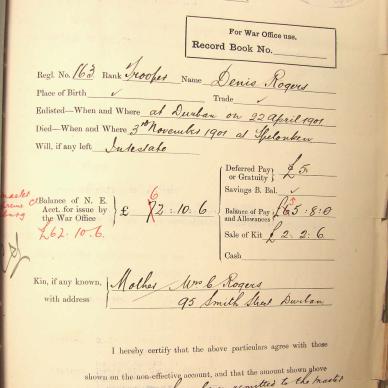 For War Office use.
Record Book No.
Regl. No. 163 Rank Trooper Name Denis Rogers
Place of Birth ✓ Trade ✓
Enlisted—When and Where at Durban on 22 April 1901
Died—When and Where 3rd November 1901 at Spelonken
Will, if any left Intestate
Deferred Pay or Gratuity } £5
Savings B. Bal. ✓
Balance of N. E. Acct. for issue by the War Office } £ 62 : 10 : 6
£62. 10. 6.
Balance of Pay and Allowances } £55 : 8 : 0
Sale of Kit £2 : 2 : 6
Cash
Kin, if any known, with address } Mother Mrs C Rogers
95 Smith Street Durban
I hereby certify that the above particulars agree with those
shown on the non-effective account, and that the amount shown above
remitted to the